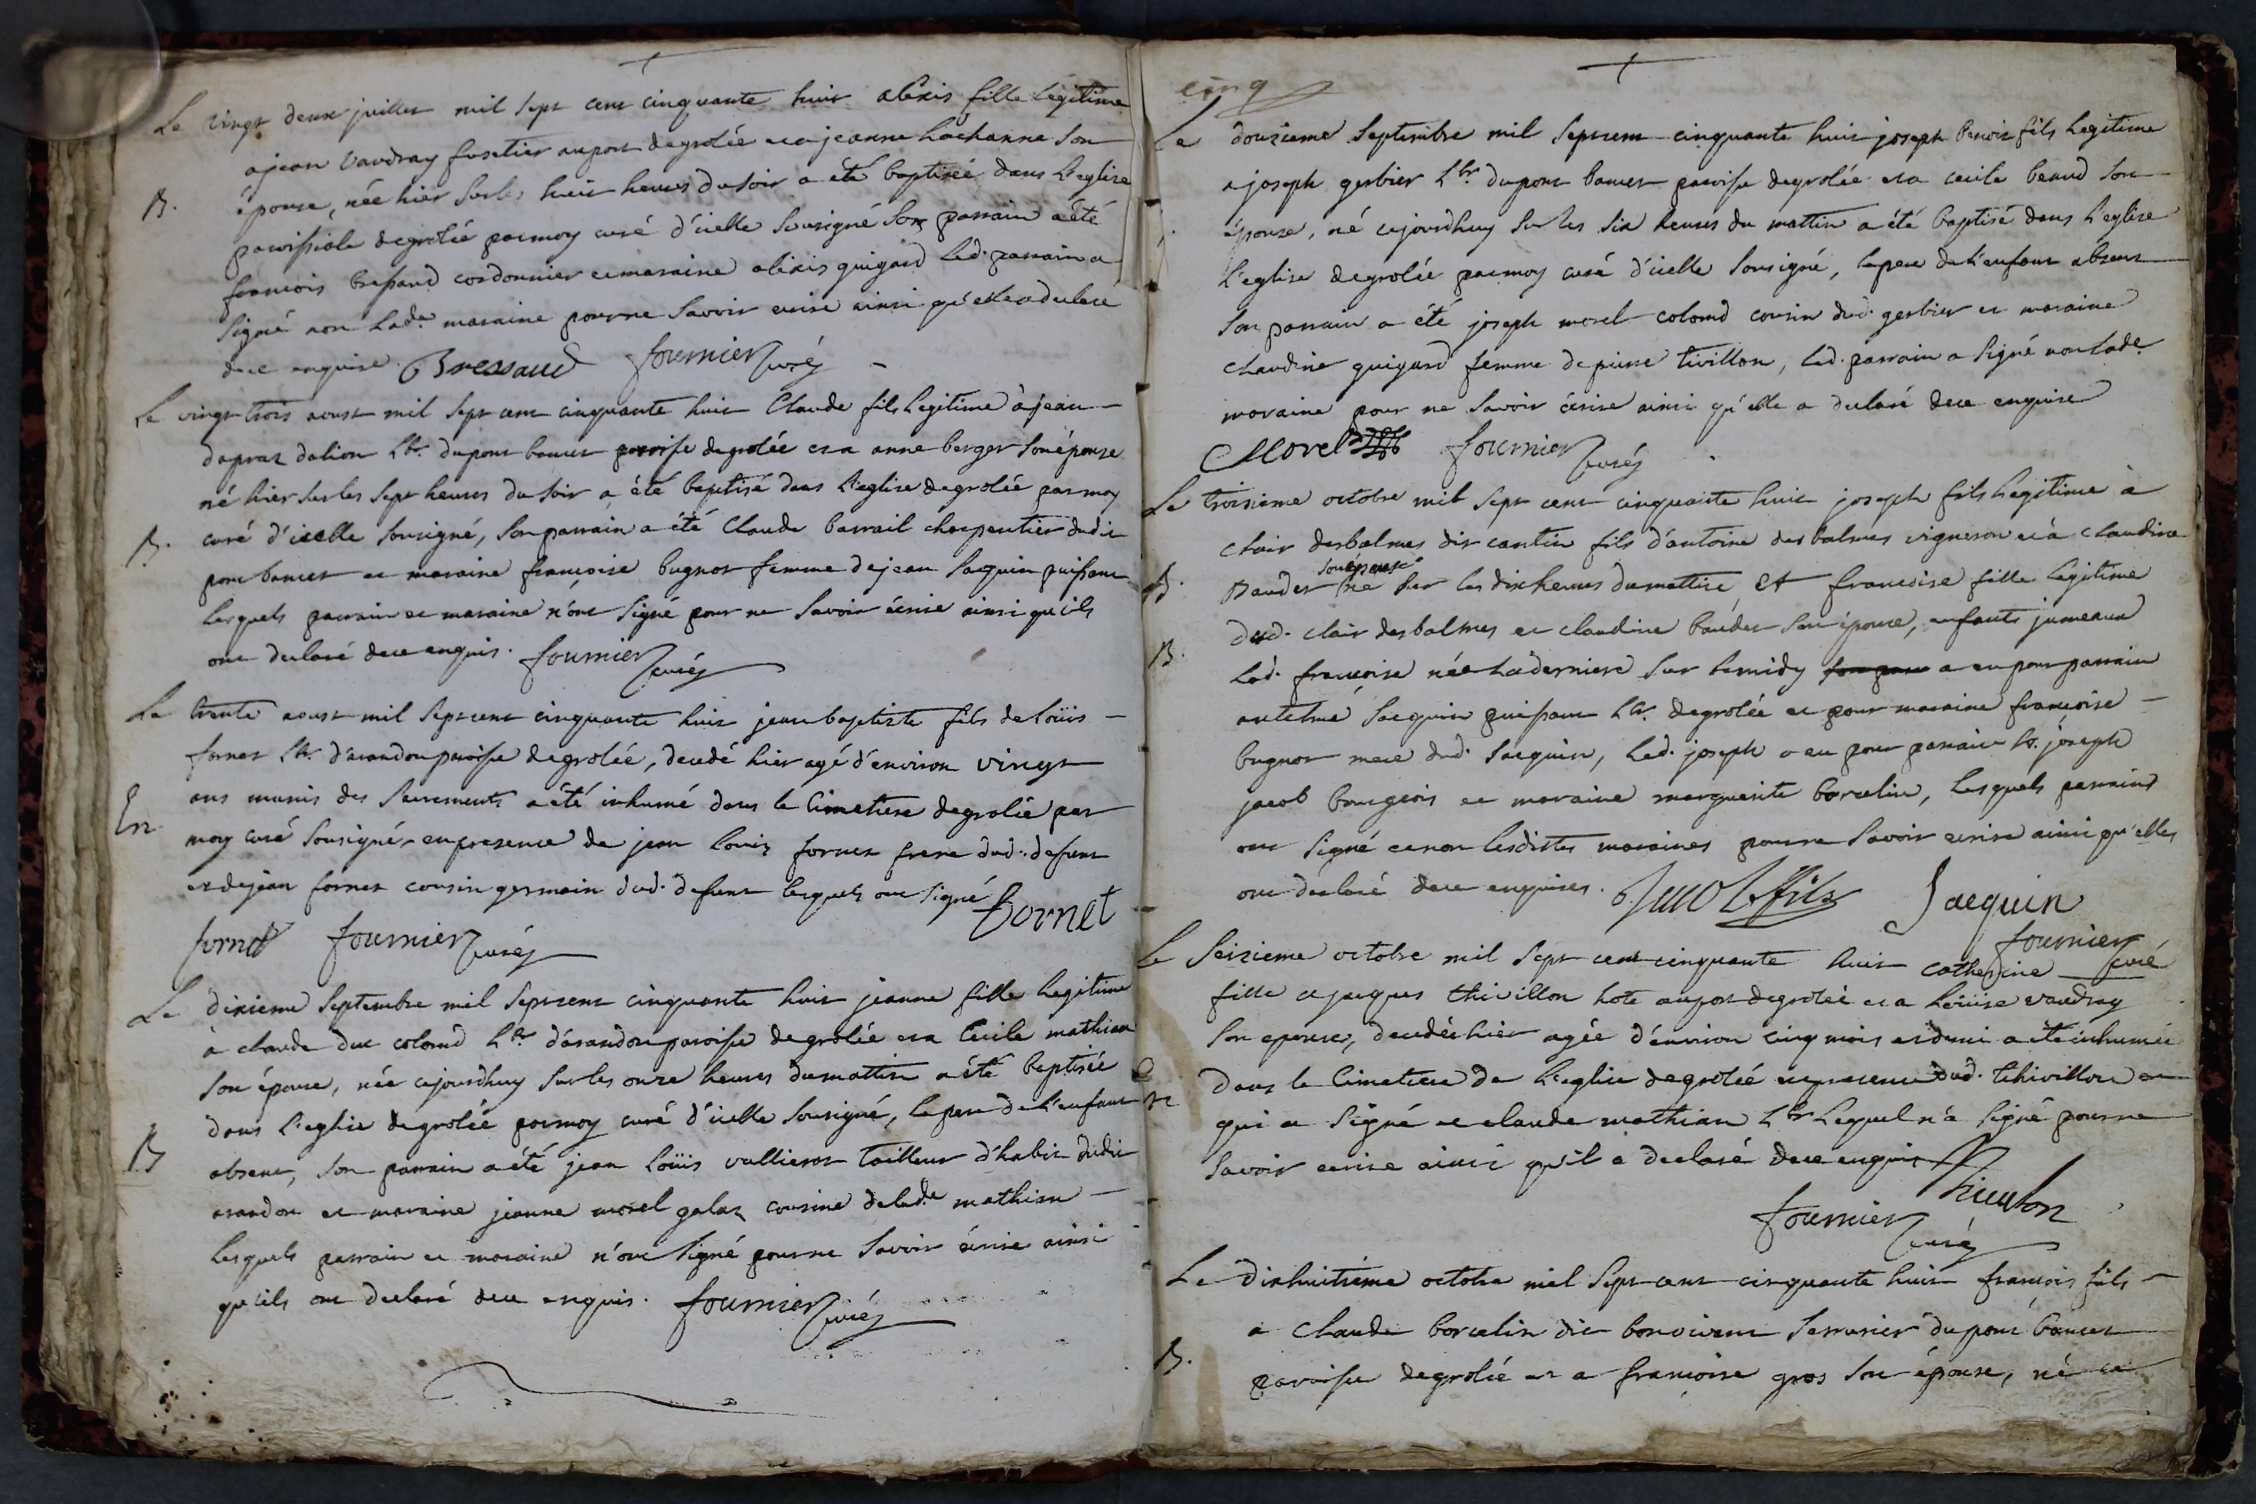 Le vingt deux juillet mil sept cent cinquante huit alexis fille legitime
a jean vaudray fusetier au port de grolée et a jeanne Lachanna son
B. épouse, née hier sur les huit heures du soir a été baptisée dans l'eglise
paroissiale de grolée par moy curé d'icelle sousigné son parrain a été
francois bressand cordonnier et maraine alexis guigard led. parrain a
signé non lade. maraine pour ne savoir ecrire ainsi qu'elle a declaré
de ce enquise. Bressaud fournier curé
Le vingt trois aoust mil sept cent cinquante huit Claude fils legitime à jean
dupraz dalion Lbr. du pont bancet paroisse de grolée et a anne berger son épouse
né hier sur les sept heures du soir a été baptisé dans l'eglise de grolée par moy
B. curé d'icelle sousigné, son parrain a été Claude barrail charpentier dudit
pont bancet et maraine françoise bugnot femme de jean Jacquin puissant
lesquels parrain et maraine n'ont signé pour ne savoir écrire ainsi qu'ils
ont declaré de ce enquis. fournier curé
Le trente aoust mil sept cent cinquante huit jean baptiste fils de loüis
fornet Lbr. d'arandon paroisse de grolée, decedé hier agé d'environ vingt
En ans munis des sacrements a été inhumé dans le Cimetiere de grolée par
moy curé sousigné en presence de jean louis fornet frere dud. defunt
et de jean fornet cousin germain dud. defunt lesquels ont signé fornet
fornet fournier curé
Le dixieme septembre mil sept cent cinquante huit jeanne fille legitime
à claude duc colomd Lbr. d'arandon paroisse de grolée et a Cecile mathian
son épouse, née cejourdhuy sur les onze heures du mattin a été baptisée
dans l'eglise de grolée par moy curé d'icelle sousigné, le pere de l'enfant
B absent, son parrain a été jean loüis vallieros tailleur d'habit dudit
arandon et maraine jeanne morel galaz cousine de lade mathian
lesquels parrain et maraine n'ont signé pour ne savoir écrire ainsi
qu'ils ont declaré de ce enquis. fournier curé
cinq
Le douzieme septembre mil sept cent cinquante huit joseph benoit fils legitime
a joseph gerbier Lbr. du pont bancet paroisse de grolée et a cecile beaud son
épouse, né cejourdhuy sur les six heures du mattin a été baptisé dans l'eglise
l'eglise de grolée par moy curé d'icelle sousigné, le pere de l'enfant absent
son parrain a été joseph morel colomd cousin dud. gerbier et maraine
claudine guigard femme de pierre tivillon, led. parrain a signé non lade.
maraine pour ne savoir écrire ainsi qu'elle a declaré de ce enquise
Morel fournier curé
Le troisieme octobre mil sept cent cinquante huit joseph fils legitime à
clair desbalmes dit cantin fils d'antoine des balmes vigneron et à claudine
son épouse
B. baudet né sur les dix heures du mattin, et francoise fille legitime
B. dud. clair desbalmes et claudine baudet son épouse, enfants jumeaux
lad. françoise née la derniere sur le midy a eu pour parrain
antelme Jacquin puissant Lbr. de grolée et pour maraine francoise
bugnot mere dud. Jacquin, led. joseph a eu pour parrain Sr. joseph
jacob bourgeois et maraine marguerite borcelin, lesquels parrains
ont signé et non lesdittes maraines pour ne savoir ecrire ainsi qu'elles
ont declaré de ce enquises. Jacob fils Jacquin
fournier curé
Le seizieme octobre mil sept cent cinquante huit catherine
fille a jacques thivillon hote au port de grolée et a loüise vaudray
son epouse, decedée hier agée d'environ cinq mois et demi a été inhumée
En dans le Cimetiere de l'eglise de grolée en presence dud. thivillon
qui a signé et claude mathian Lbr lequel n'a signé pour ne
savoir ecrire ainsi qu'il a declaré de ce enquis
fournier curé
Le dixhuitieme octobre mil sept cent cinquante huit françois fils
a Claude borcelin dit bonvivant serrurier du pont bancet
B. paroisse de grolée et a françoise gros son épouse, né ce